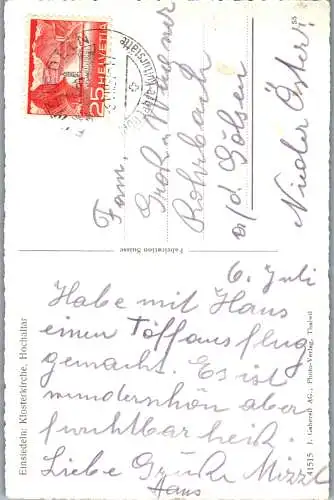 HELVETIA
25
Fam.
Groh. Wagner
Rohrbach
a/d. Gölsen
Nieder Österr.
55
Fabrication Suisse
6. Juli
Habe mit Hans
einen Töffausflug
gemacht. Es ist
wunderschön aber
furchtbar heiß.
Liebe Grüße Mizzi
Hans
Einsiedeln: Klosterkirche, Hochaltar
41515 J. Gaberell AG., Photo-Verlag, Thalwil